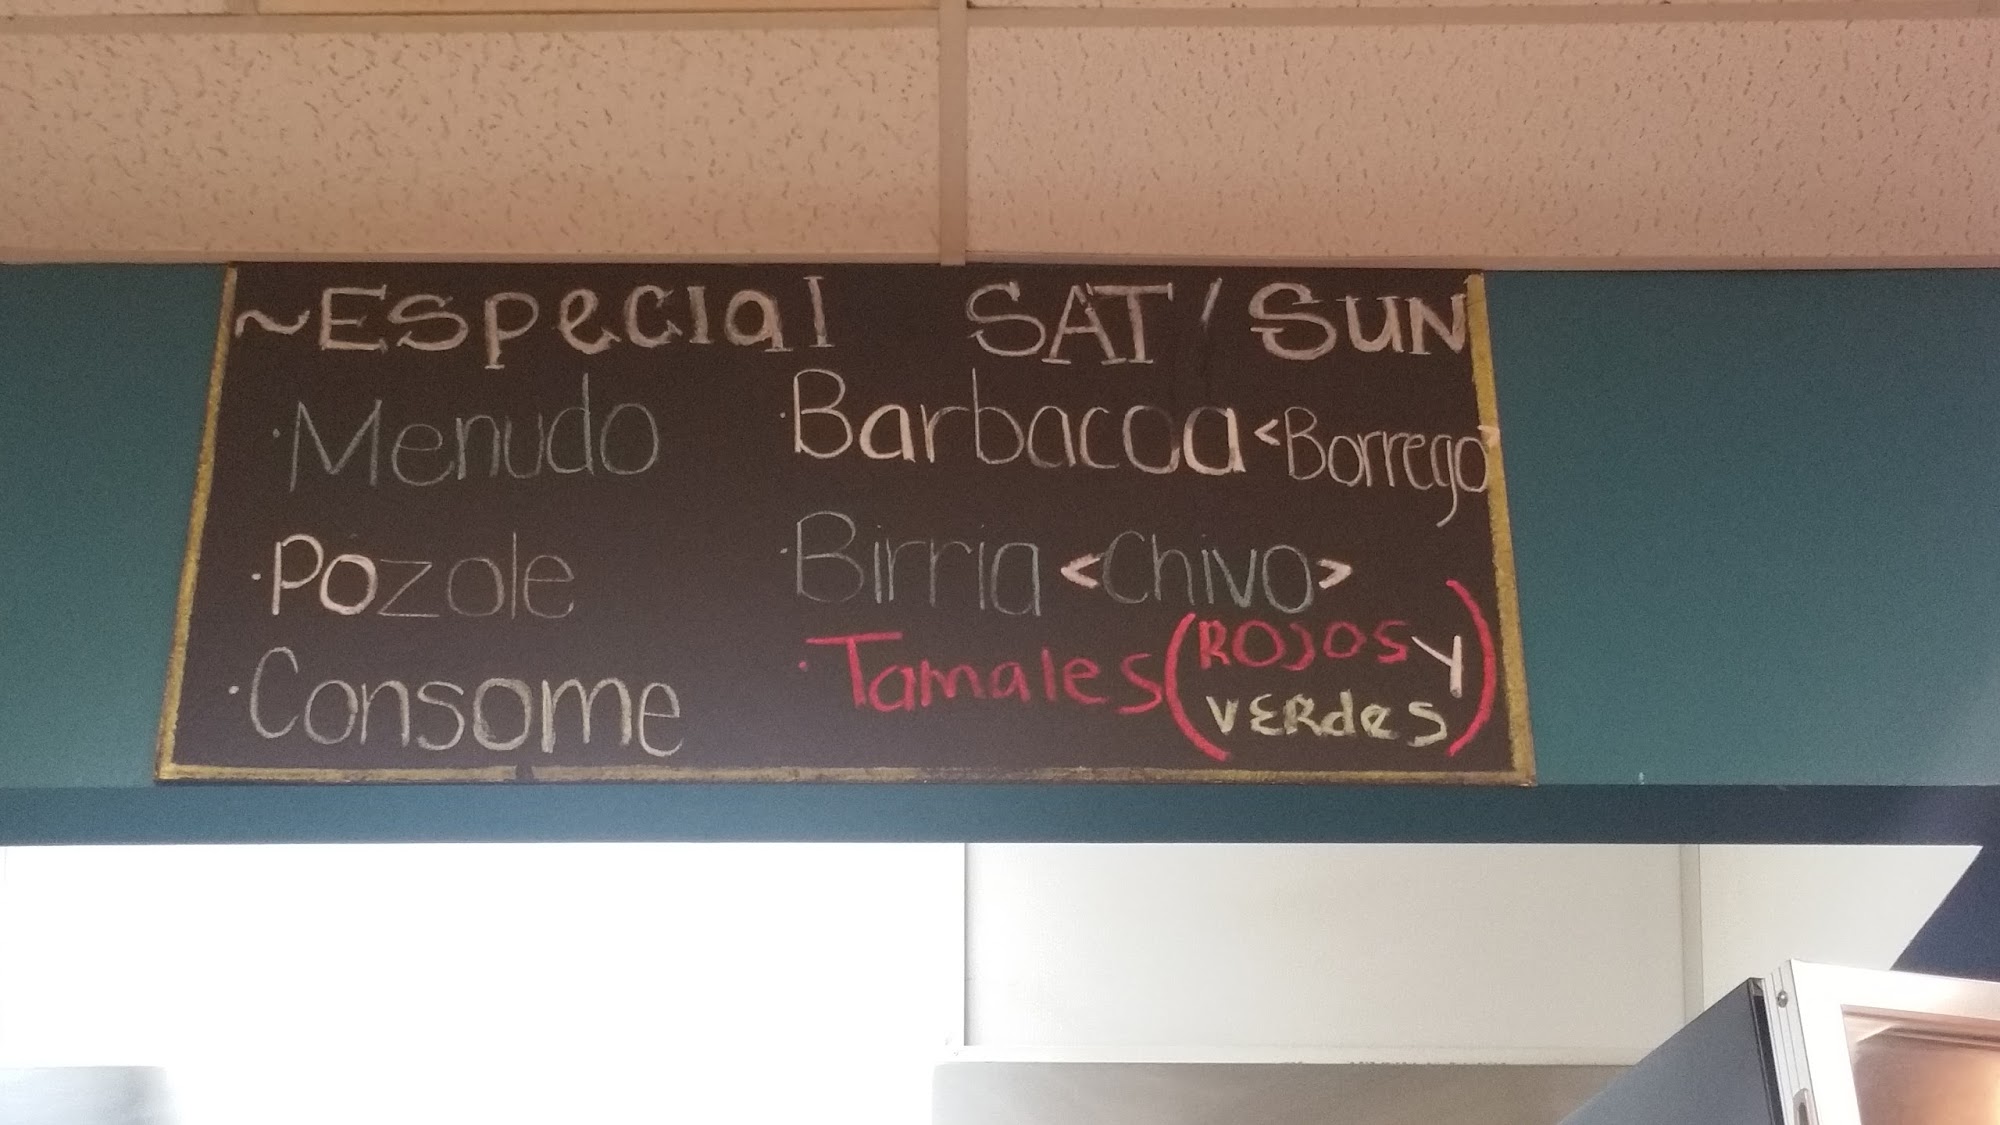 ~Especial SAT/SUN
·Menudo
·Pozole
·Consome
·Barbacoa <Borrego>
·Birria <Chivo>
·Tamales (ROJOS Y
VERdES)